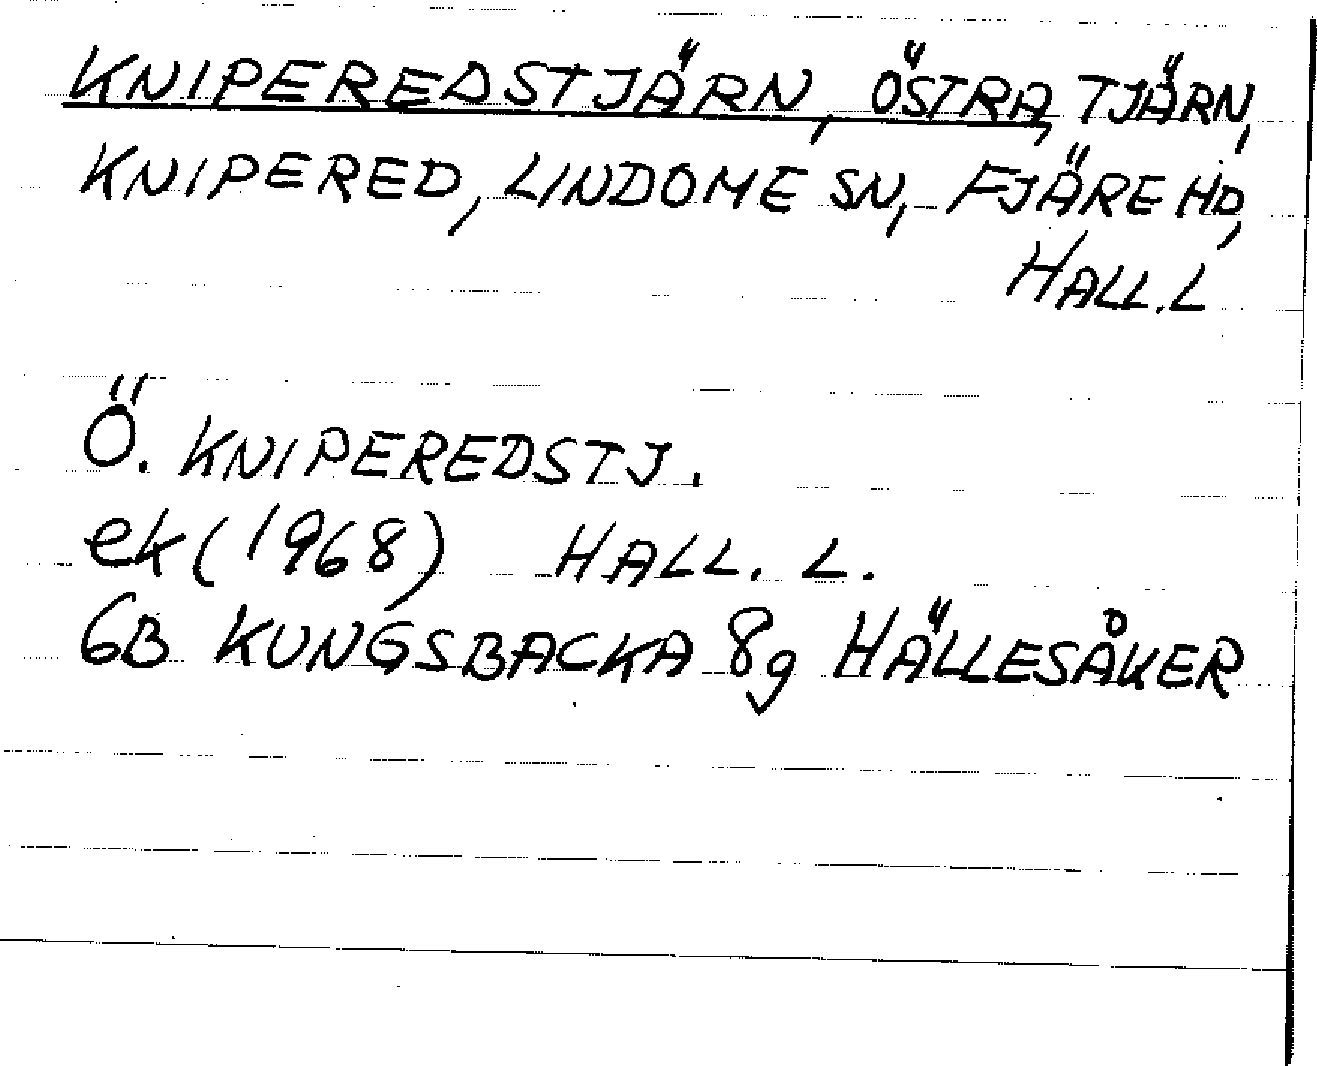 KNIPEREDSTJÄRN, ÖSTRA, TJÄRN,
KNIPERED, LINDOME SN, FJÄRE HD,
HALL.L
Ö. KNIPEREDSTJ.
ek (1968) HALL. L.
6B KUNGSBACKA 8g HÄLLESÅKER